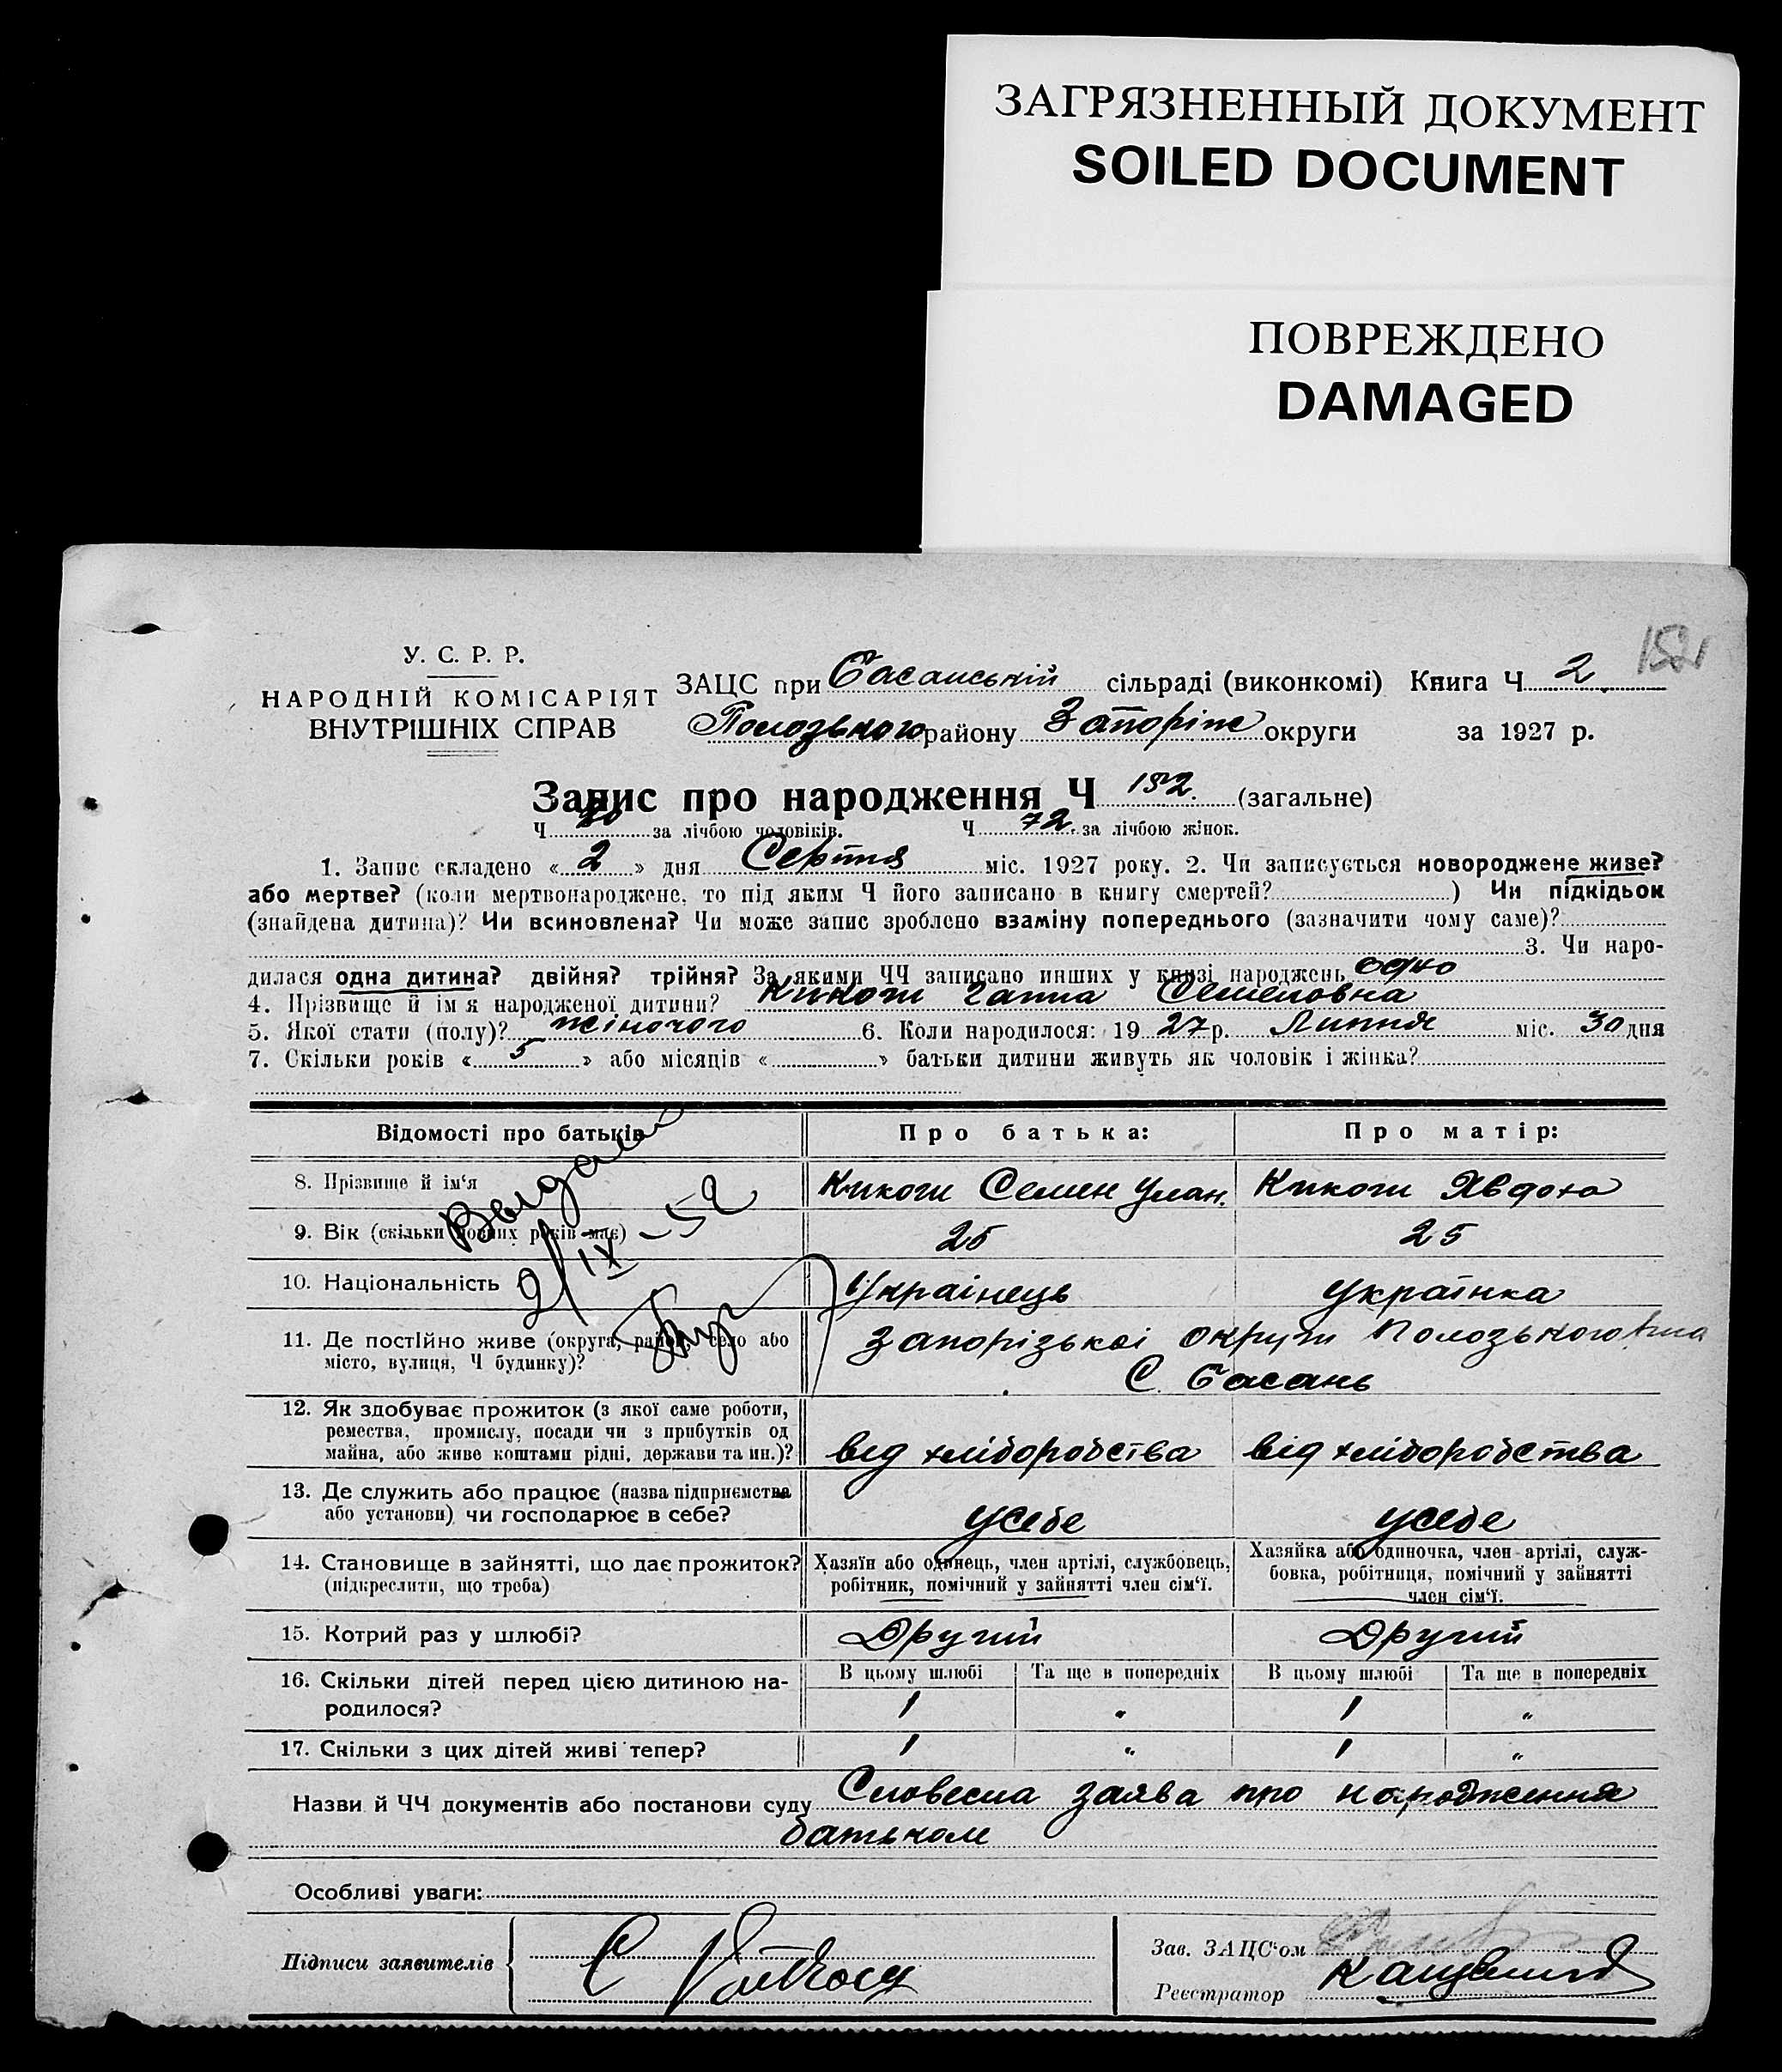 ЗАГРЯЗНЕННЫЙ ДОКУМЕНТ
SOILED DOCUMENT
ПОВРЕЖДЕНО
DAMAGED
У. С. Р. Р.
НАРОДНІЙ КОМІСАРІЯТ
ВНУТРІШНІХ СПРАВ
ЗАЦС при Басанській сільраді (виконкомі) Книга Ч 2
Полозького району Запоріж округи за 1927 р.
Запис про народження Ч 152. (загальне)
Ч 80 за лічбою чоловіків. Ч 72. за лічбою жінок.
1. Запис складено « 2 » дня Серпня міс. 1927 року. 2. Чи записується новороджене живе?
або мертве? (коли мертвонароджене, то під яким Ч його записано в книгу смертей? ) Чи підкідьок
(знайдена дитина)? Чи всиновлена? Чи може запис зроблено взаміну попереднього (зазначити чому саме)?
3. Чи наро-
дилася одна дитина? двійня? трійня? За якими ЧЧ записано инших у книзі народжень одно
4. Прізвище й ім'я народженої дитини? Кикош Ганна Семеновна
5. Якої стати (полу)? жіночого 6. Коли народилося: 19 27 р. Липня міс. 30 дня
7. Скільки років « 5 » або місяців « » батьки дитини живуть як чоловік і жінка?
Відомості про батьків Про батька: Про матір:
8. Прізвище й ім'я Кикош Семен Улан. Кикош Явдоха
9. Вік (скільки повних років має) 25 25
10. Національність Українець Українка
11. Де постійно живе (округа, район, село або Запорізькоі округи Полозького
місто, вулиця, Ч будинку)? С. Басань
12. Як здобуває прожиток (з якої саме роботи,
ремества, промислу, посади чи з прибутків од
майна, або живе коштами рідні, держави та ин.)? від хліборобства від хліборобства
13. Де служить або працює (назва підприємства
або установи) чи господарює в себе? усебе усебе
14. Становище в зайнятті, що дає прожиток? Хазяїн або одинець, член артілі, службовець, Хазяйка або одиночка, член артілі, служ-
(підкреслити, що треба) робітник, помічний у зайнятті член сім'ї. бовка, робітниця, помічний у зайнятті
член сім'ї.
15. Котрий раз у шлюбі? Другий Другий
16. Скільки дітей перед цією дитиною на- В цьому шлюбі Та ще в попередніх В цьому шлюбі Та ще в попередніх
родилося? 1 " 1 "
17. Скільки з цих дітей живі тепер? 1 " 1 "
9/IX-52
Назви й ЧЧ документів або постанови суду Словесна заява про народження
батьком
Особливі уваги:
Підписи заявителів
Зав. ЗАЦС'ом
Реєстратор